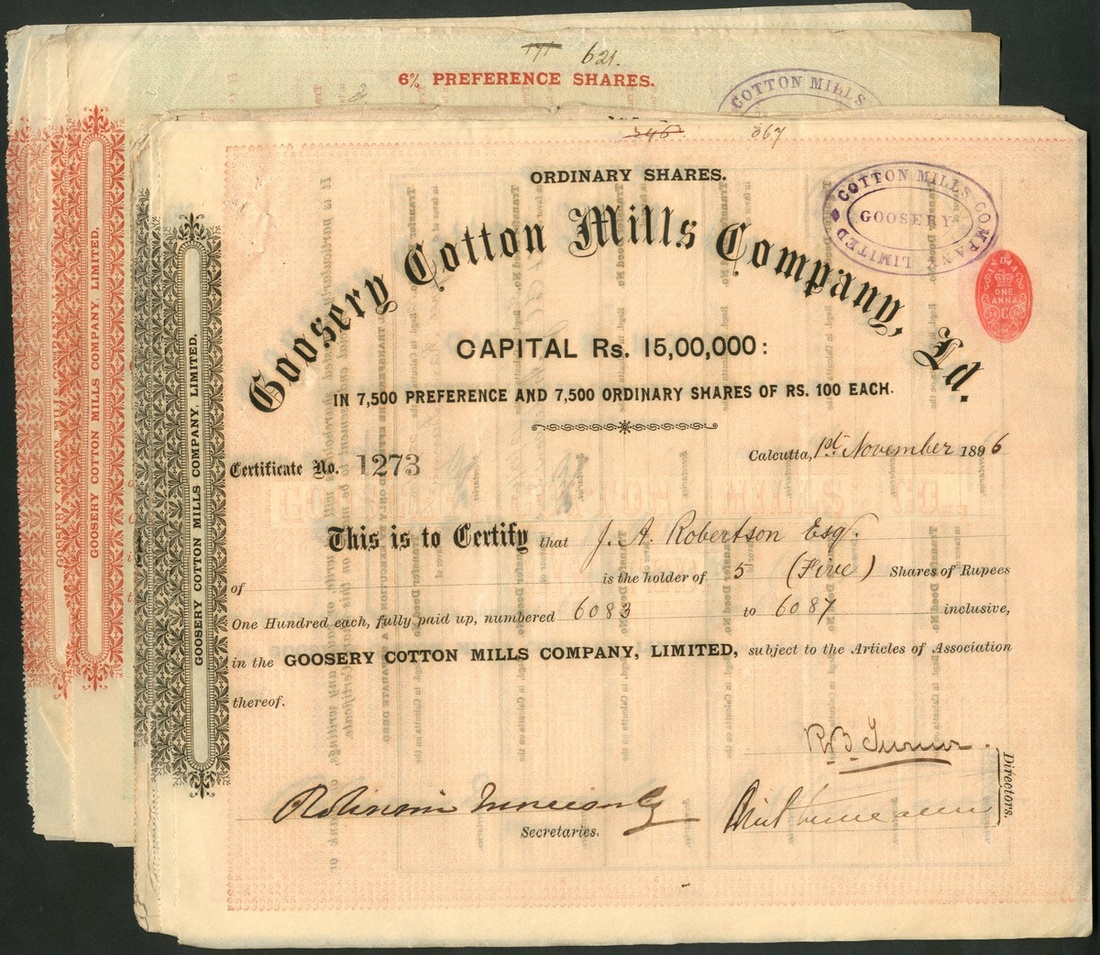 171 621.
6% PREFERENCE SHARES.
COTTON MILLS
346 367
ORDINARY SHARES.
COTTON MILLS COMPANY LIMITED
GOOSERY
Goosery Cotton Mills Company, Ld.
INDIA
ONE
ANNA
CAPITAL Rs. 15,00,000:
IN 7,500 PREFERENCE AND 7,500 ORDINARY SHARES OF RS. 100 EACH.
Certificate No. 1273
Calcutta, 1st November 1896
GOOSERY COTTON MILLS CO.
This is to Certify that J. A. Robertson Esqr.
of is the holder of 5 (Five) Shares of Rupees
One Hundred each, fully paid up, numbered 6083 to 6087 inclusive,
in the GOOSERY COTTON MILLS COMPANY, LIMITED, subject to the Articles of Association
thereof.
R B Turner.
Directors.
Secretaries.
GOOSERY COTTON MILLS COMPANY, LIMITED.
GOOSERY COTTON MILLS COMPANY LIMITED.
GOOSERY COTTON MILLS COMPANY